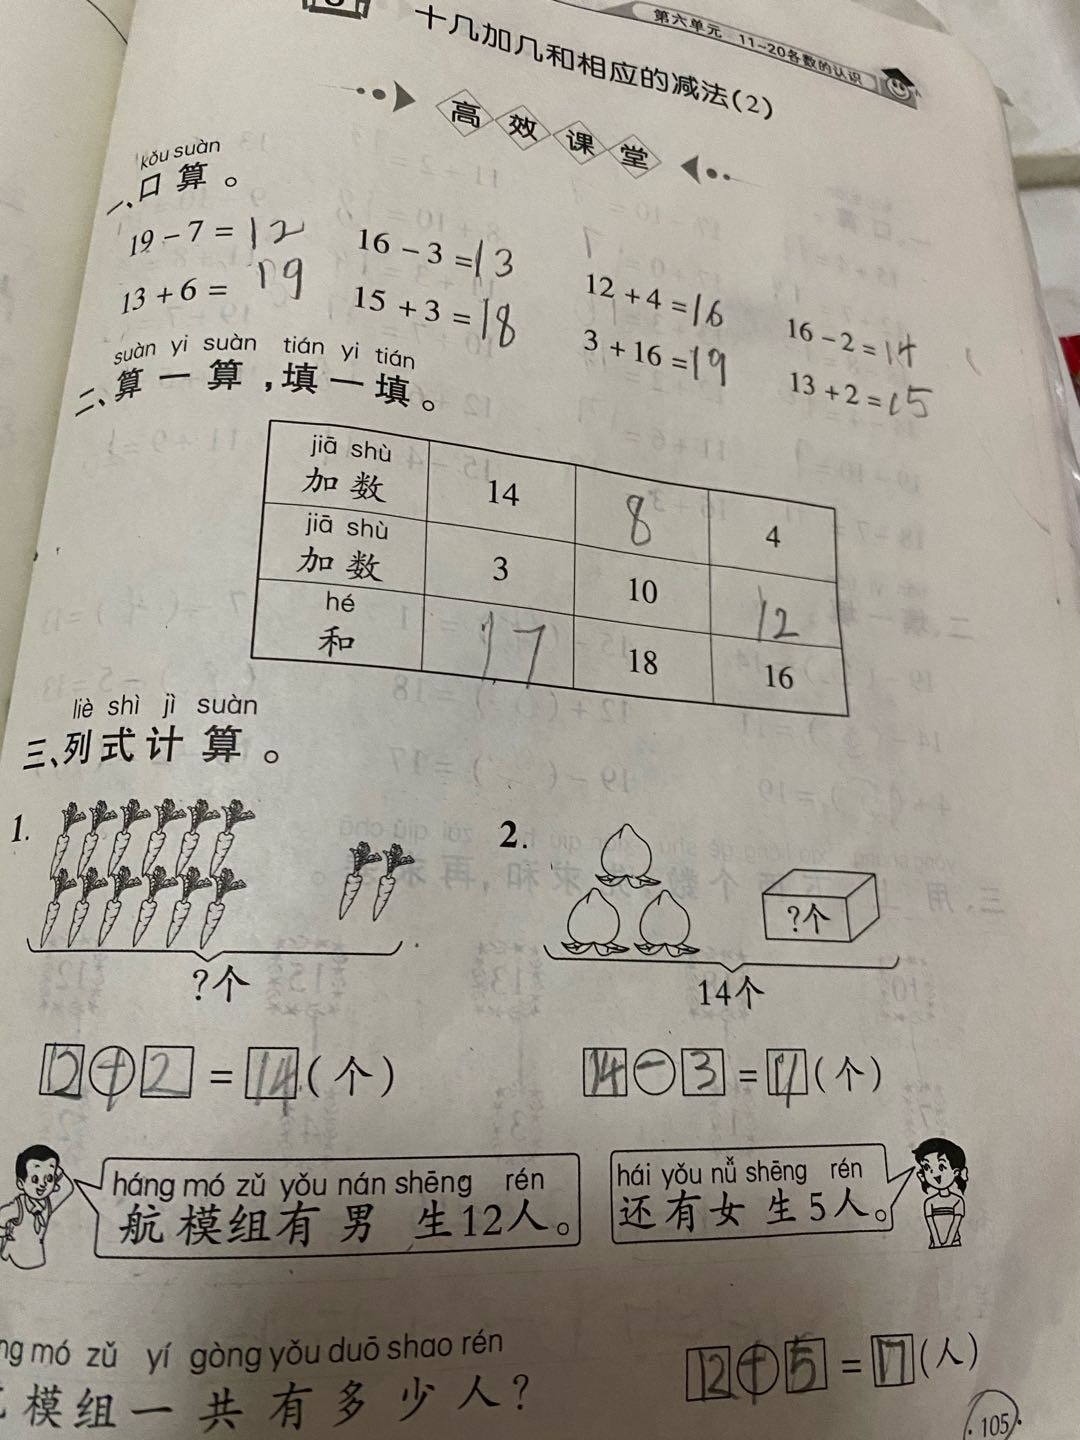 第六单元 11-20各数的认识
十几加几和相应的减法(2)
高效课堂
kǒu suàn
一、口算。
19-7=12 16-3=13 12+4=16 16-2=14
13+6=19 15+3=18 3+16=19 13+2=15
suàn yi suàn tián yi tián
二、算一算,填一填。
jiā shù
加数 14 8 4
jiā shù
加数 3 10 12
hé
和 17 18 16
liè shì jì suàn
三、列式计算。
1.
?个
12+2=14(个)
2.
?个
14个
14-3=11(个)
háng mó zǔ yǒu nán shēng rén
航模组有男生12人。
hái yǒu nǚ shēng rén
还有女生5人。
mó zǔ yí gòng yǒu duō shao rén
模组一共有多少人?
12+5=17(人)
105